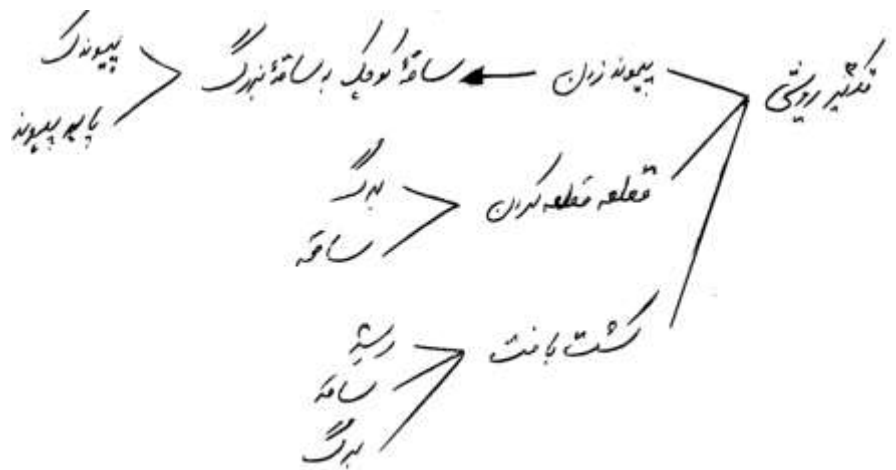 تکثیر رویشی
پیوند زدن
ساقهٔ کوچک به ساقهٔ بزرگ
پیوندک
پایه پیوند
قطعه قطعه کردن
برگ
ساقه
کشت بافت
ریشه
ساقه
برگ